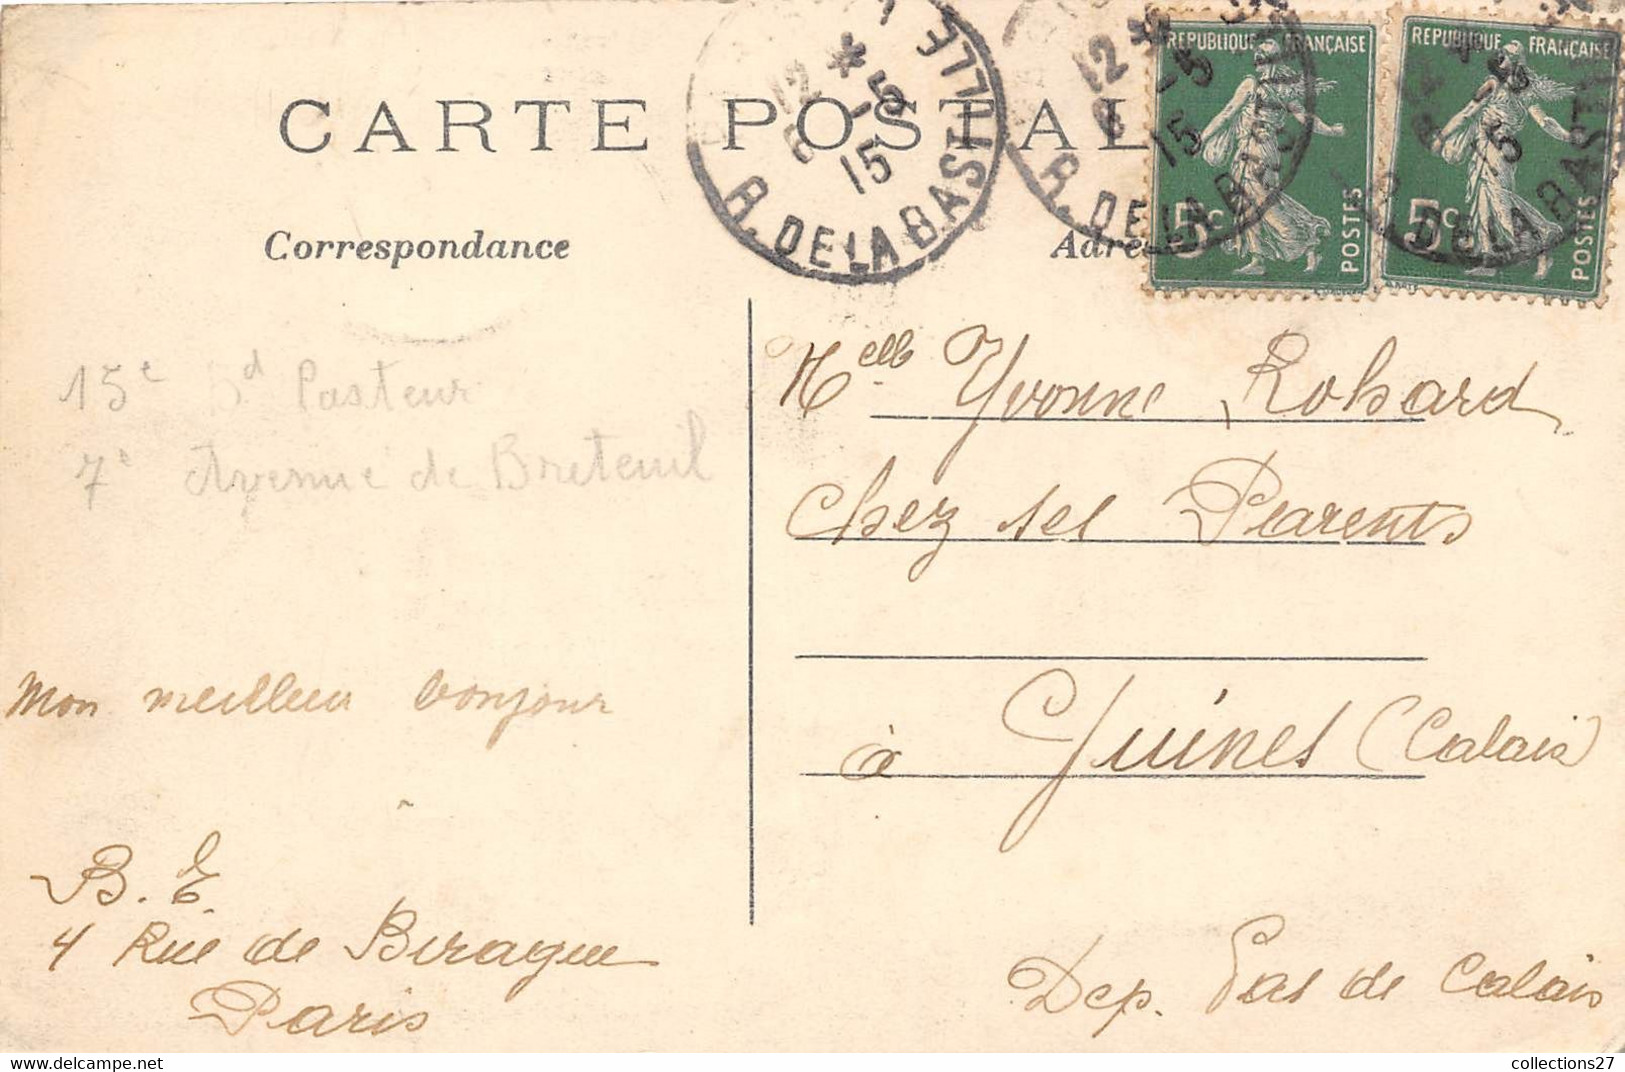 CARTE POSTALE
Correspondance
Adresse
R. DE LA BASTILLE
12 *
5
15
R. DE LA BASTILLE
12 *
5
15
R. DE LA BASTILLE
RÉPUBLIQUE FRANÇAISE
5c
POSTES
RÉPUBLIQUE FRANÇAISE
5c
POSTES
15e Bd Pasteur
7e Avenue de Breteuil
Mon meilleur bonjour
B. E.
4 Rue de Birague
Paris
Melle Yvonne Robard
Chez ses Parents
à Guines (Calais)
Dep. Pas de Calais
collections27